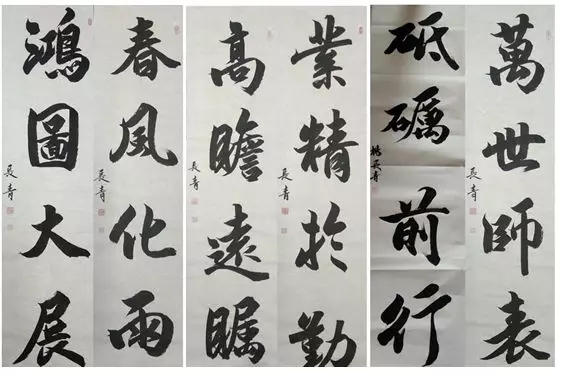 萬世師表
長青
砥礪前行
楊長青
業精於勤
長青
高瞻遠瞩
長青
春風化雨
長青
鴻圖大展
長青